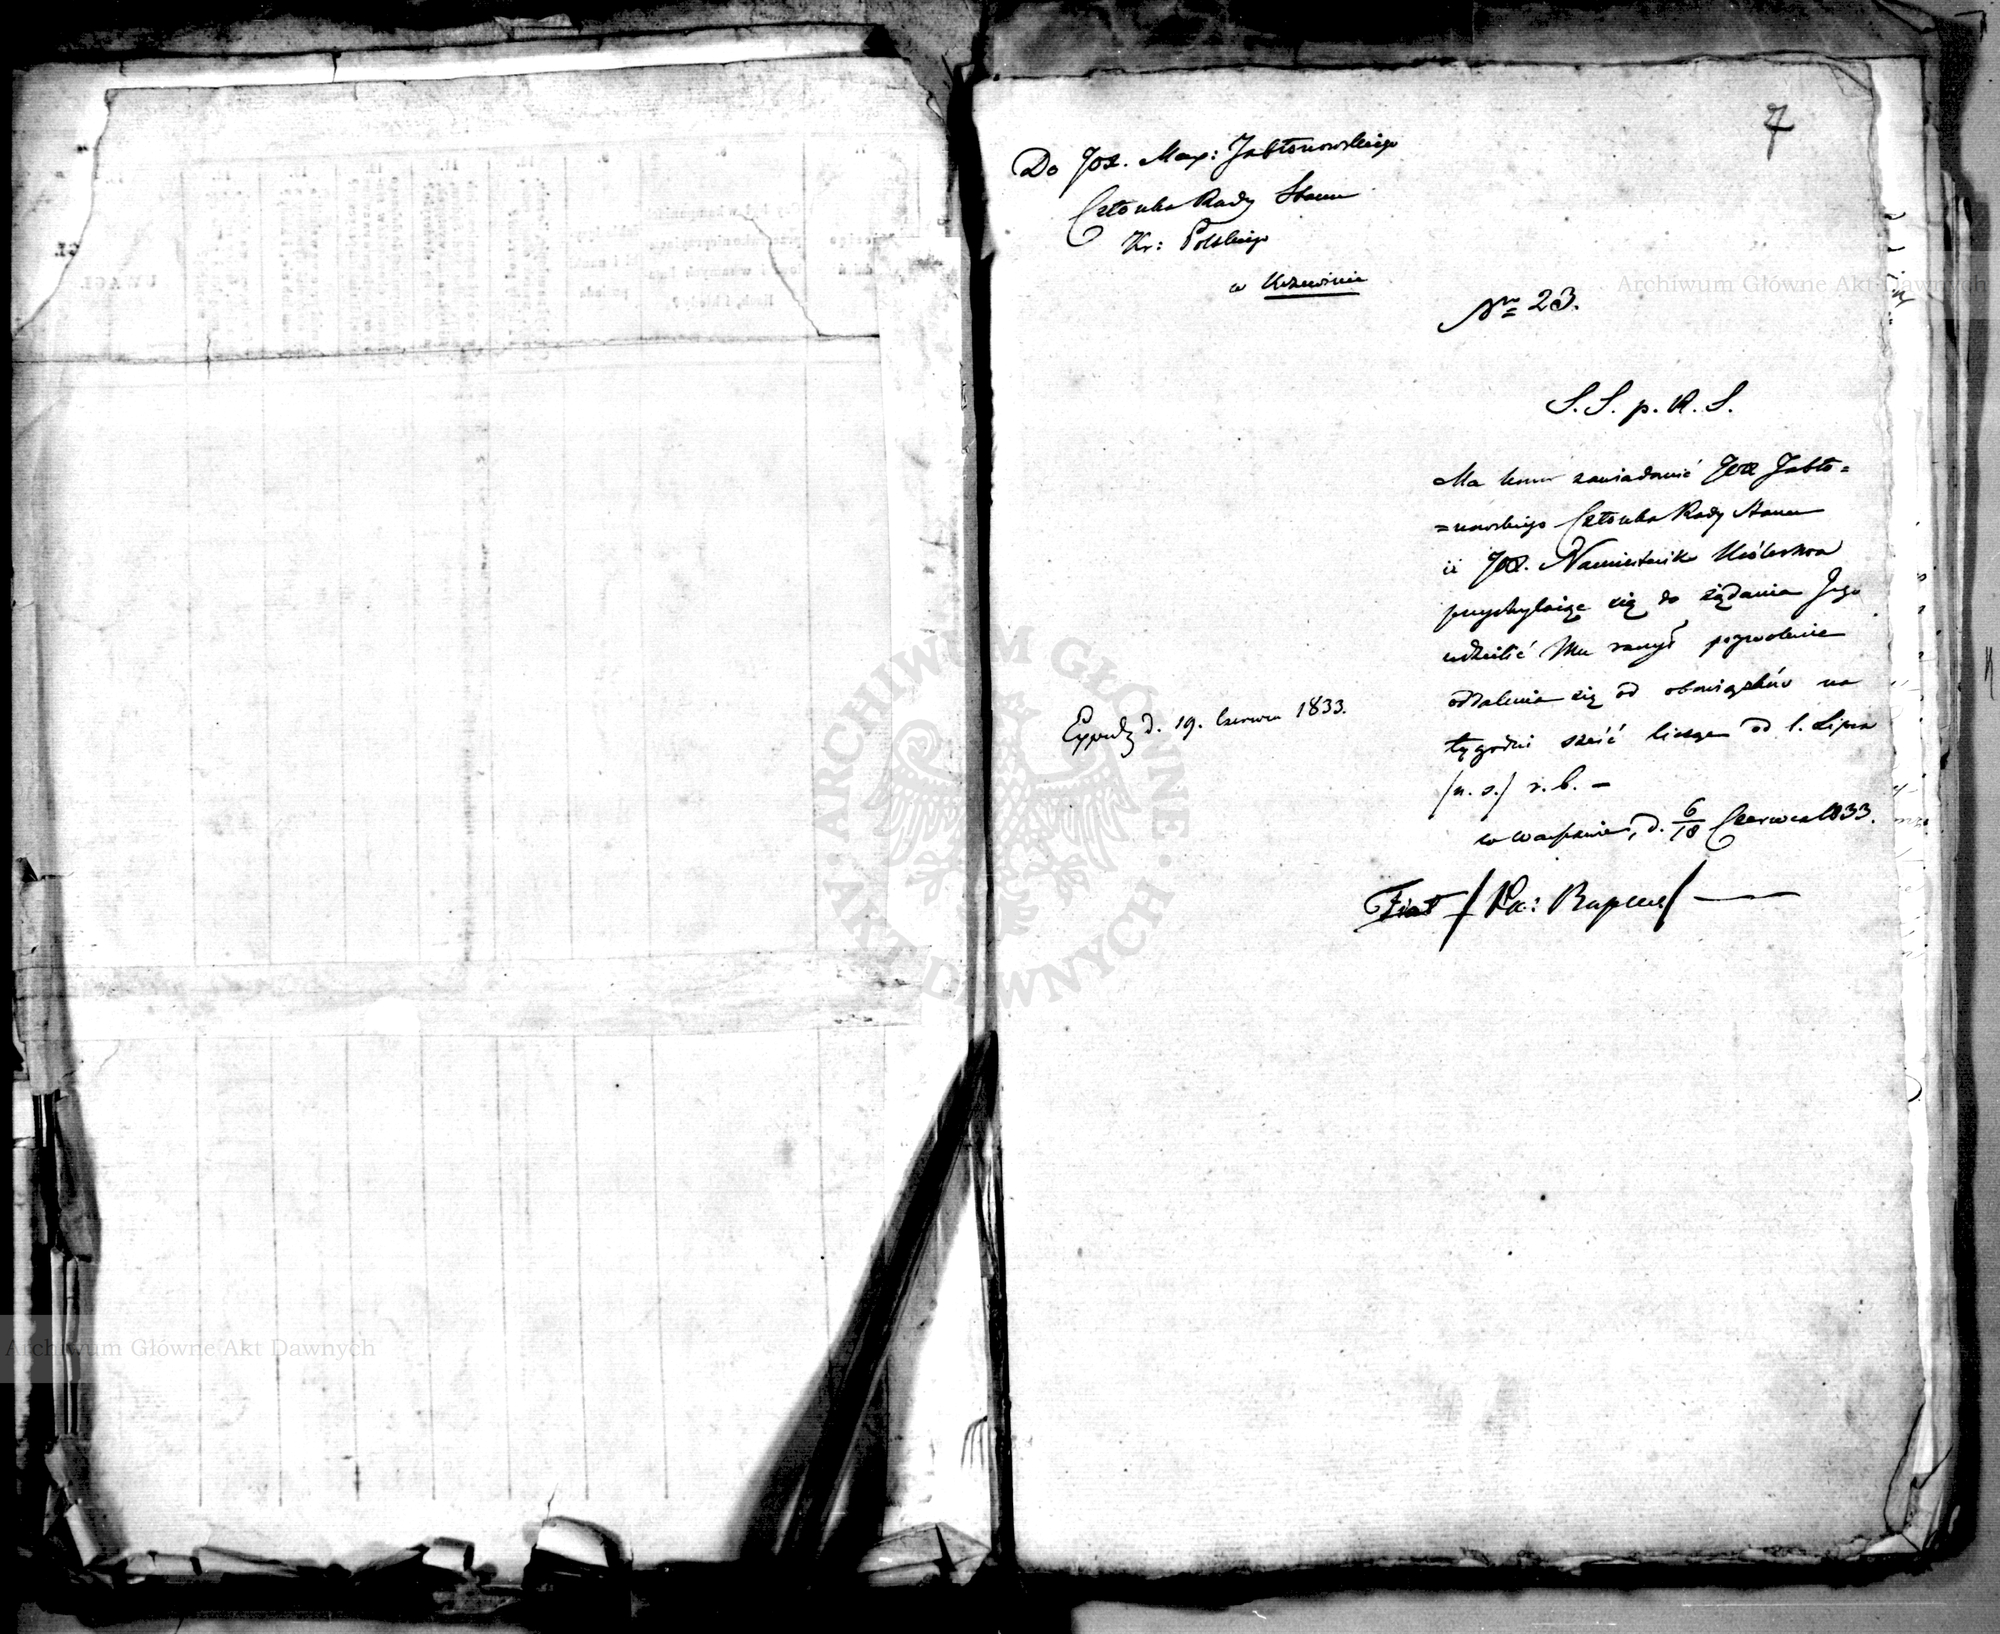 7
Do JOX. Max: Jabłonowskiego
Członka Rady Stanu
Kr: Polskiego
w Krzewinie
Nro 23.
S. S. p. R. S.
Ma honor zawiadomić JOX Jabło=
=nowskiego Członka Rady Stanu
iż JOX. Namiestnik Królestwa
przychylaiąc się do żądania Jego
udzielić Mu raczył pozwolenie
oddalenia się od obowiązków na
tygodni sześć licząc od 1. Lipca
/n. s./ r. b. –
w Warszawie, d. 6/18 Czerwca 1833.
Expend d. 19. Czerwca 1833.
Fiat /
UWAGI.
ARCHIWUM GŁÓWNE AKT DAWNYCH
Archiwum Główne Akt Dawnych
Archiwum Główne Akt Dawnych